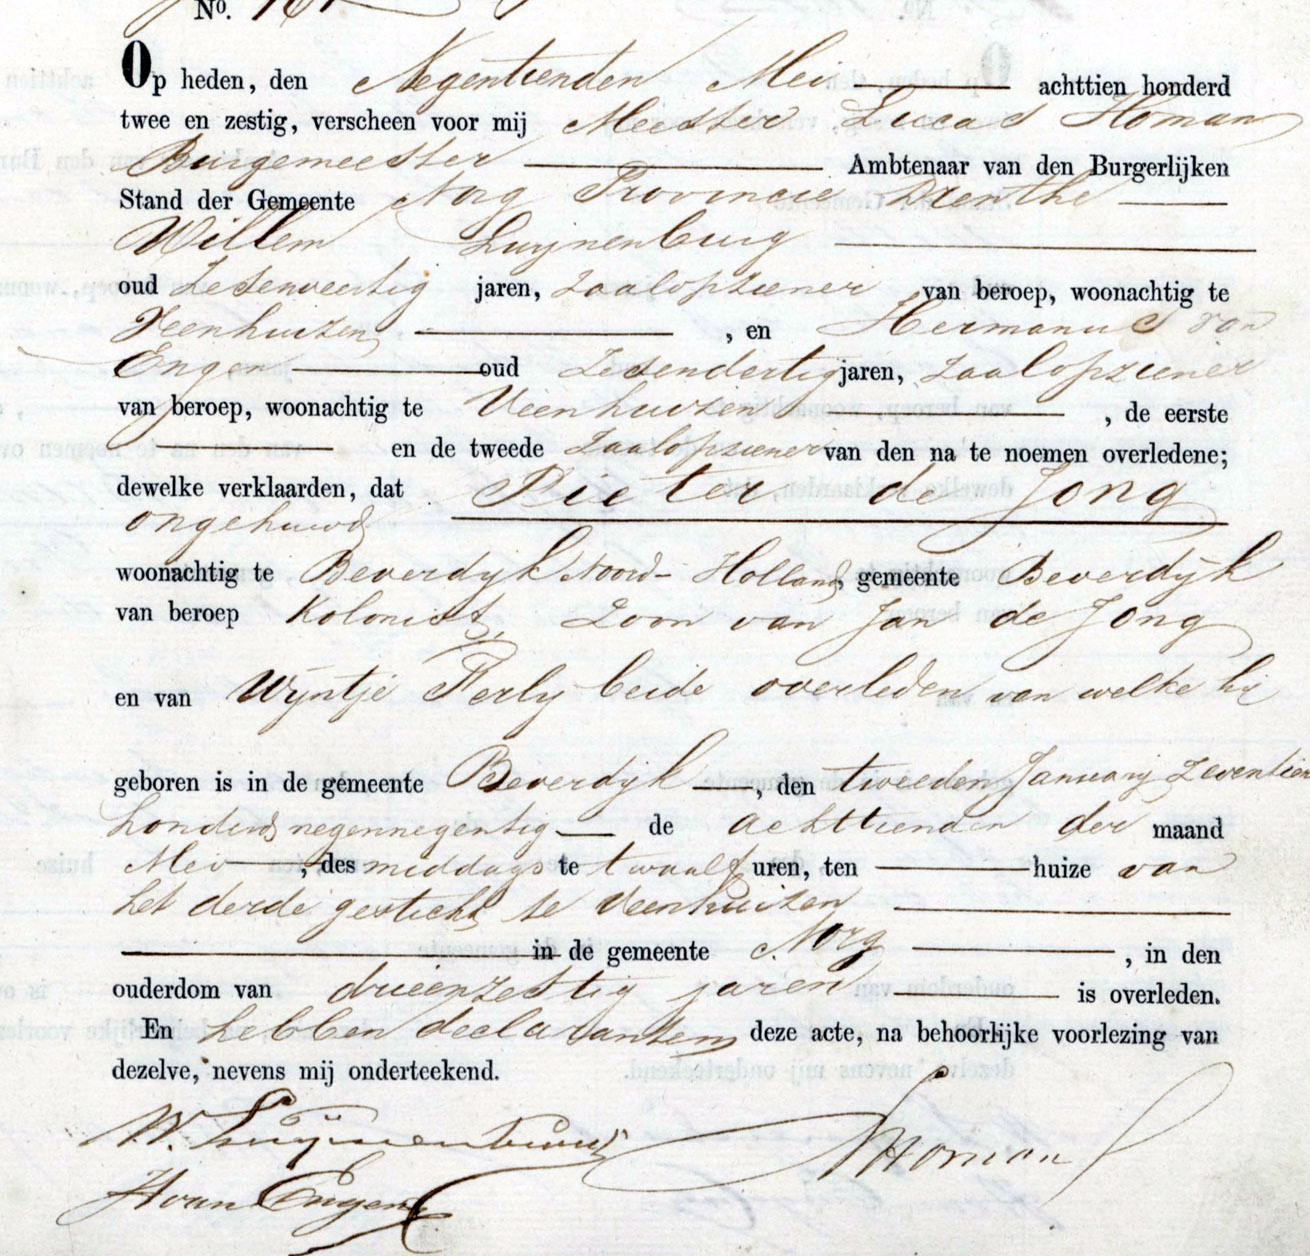 No.
Op heden, den Negentienden Mei achttien honderd
twee en zestig, verscheen voor mij Meester Lucas Homan
Burgemeester Ambtenaar van den Burgerlijken
Stand der Gemeente Norg Provincie Drenthe
Willem Luijnenburg
oud Zesenveertig jaren, zaalopziener van beroep, woonachtig te
Veenhuizen, , en Hermanus van
Engen oud Zesendertig jaren, zaalopziener
van beroep, woonachtig te Veenhuizen , de eerste
en de tweede zaalopziener van den na te noemen overledene;
dewelke verklaarden, dat Pieter de Jong
ongehuwd
woonachtig te Beverdijk Noord-Holland, gemeente Beverdijk
van beroep kolonist, Zoon van Jan de Jong
en van Wijntje beide overleden van welke hij
geboren is in de gemeente Beverdijk , den tweeden January zeventien
honderd negennegentig de achttienden der maand
Mei , des middags te twaalf uren, ten huize van
het derde gesticht te Veenhuizen
in de gemeente Norg , in den
ouderdom van drieenzestig jaren is overleden.
En hebben declaranten deze acte, na behoorlijke voorlezing van
dezelve, nevens mij onderteekend.
W. Luijnenburg LHoman
H van Engen